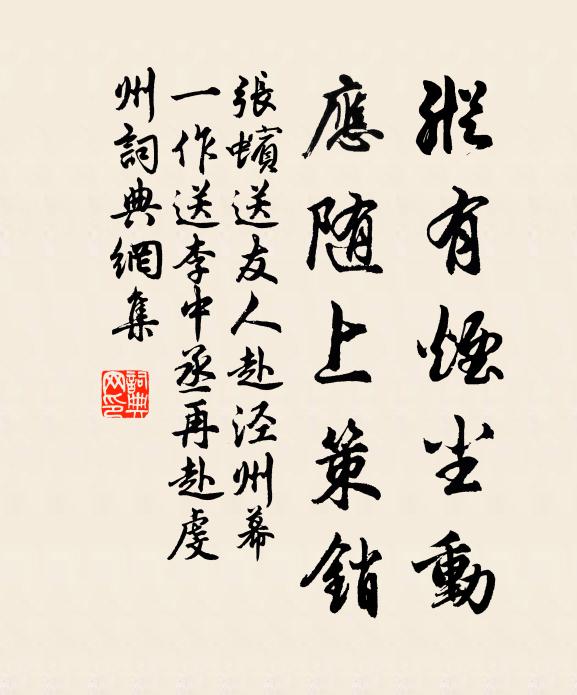 縱有煙尘動
應随上策銷
張蠙送友人赴泾州幕
一作送李中丞再赴虔
州詞典網集
詞典网印